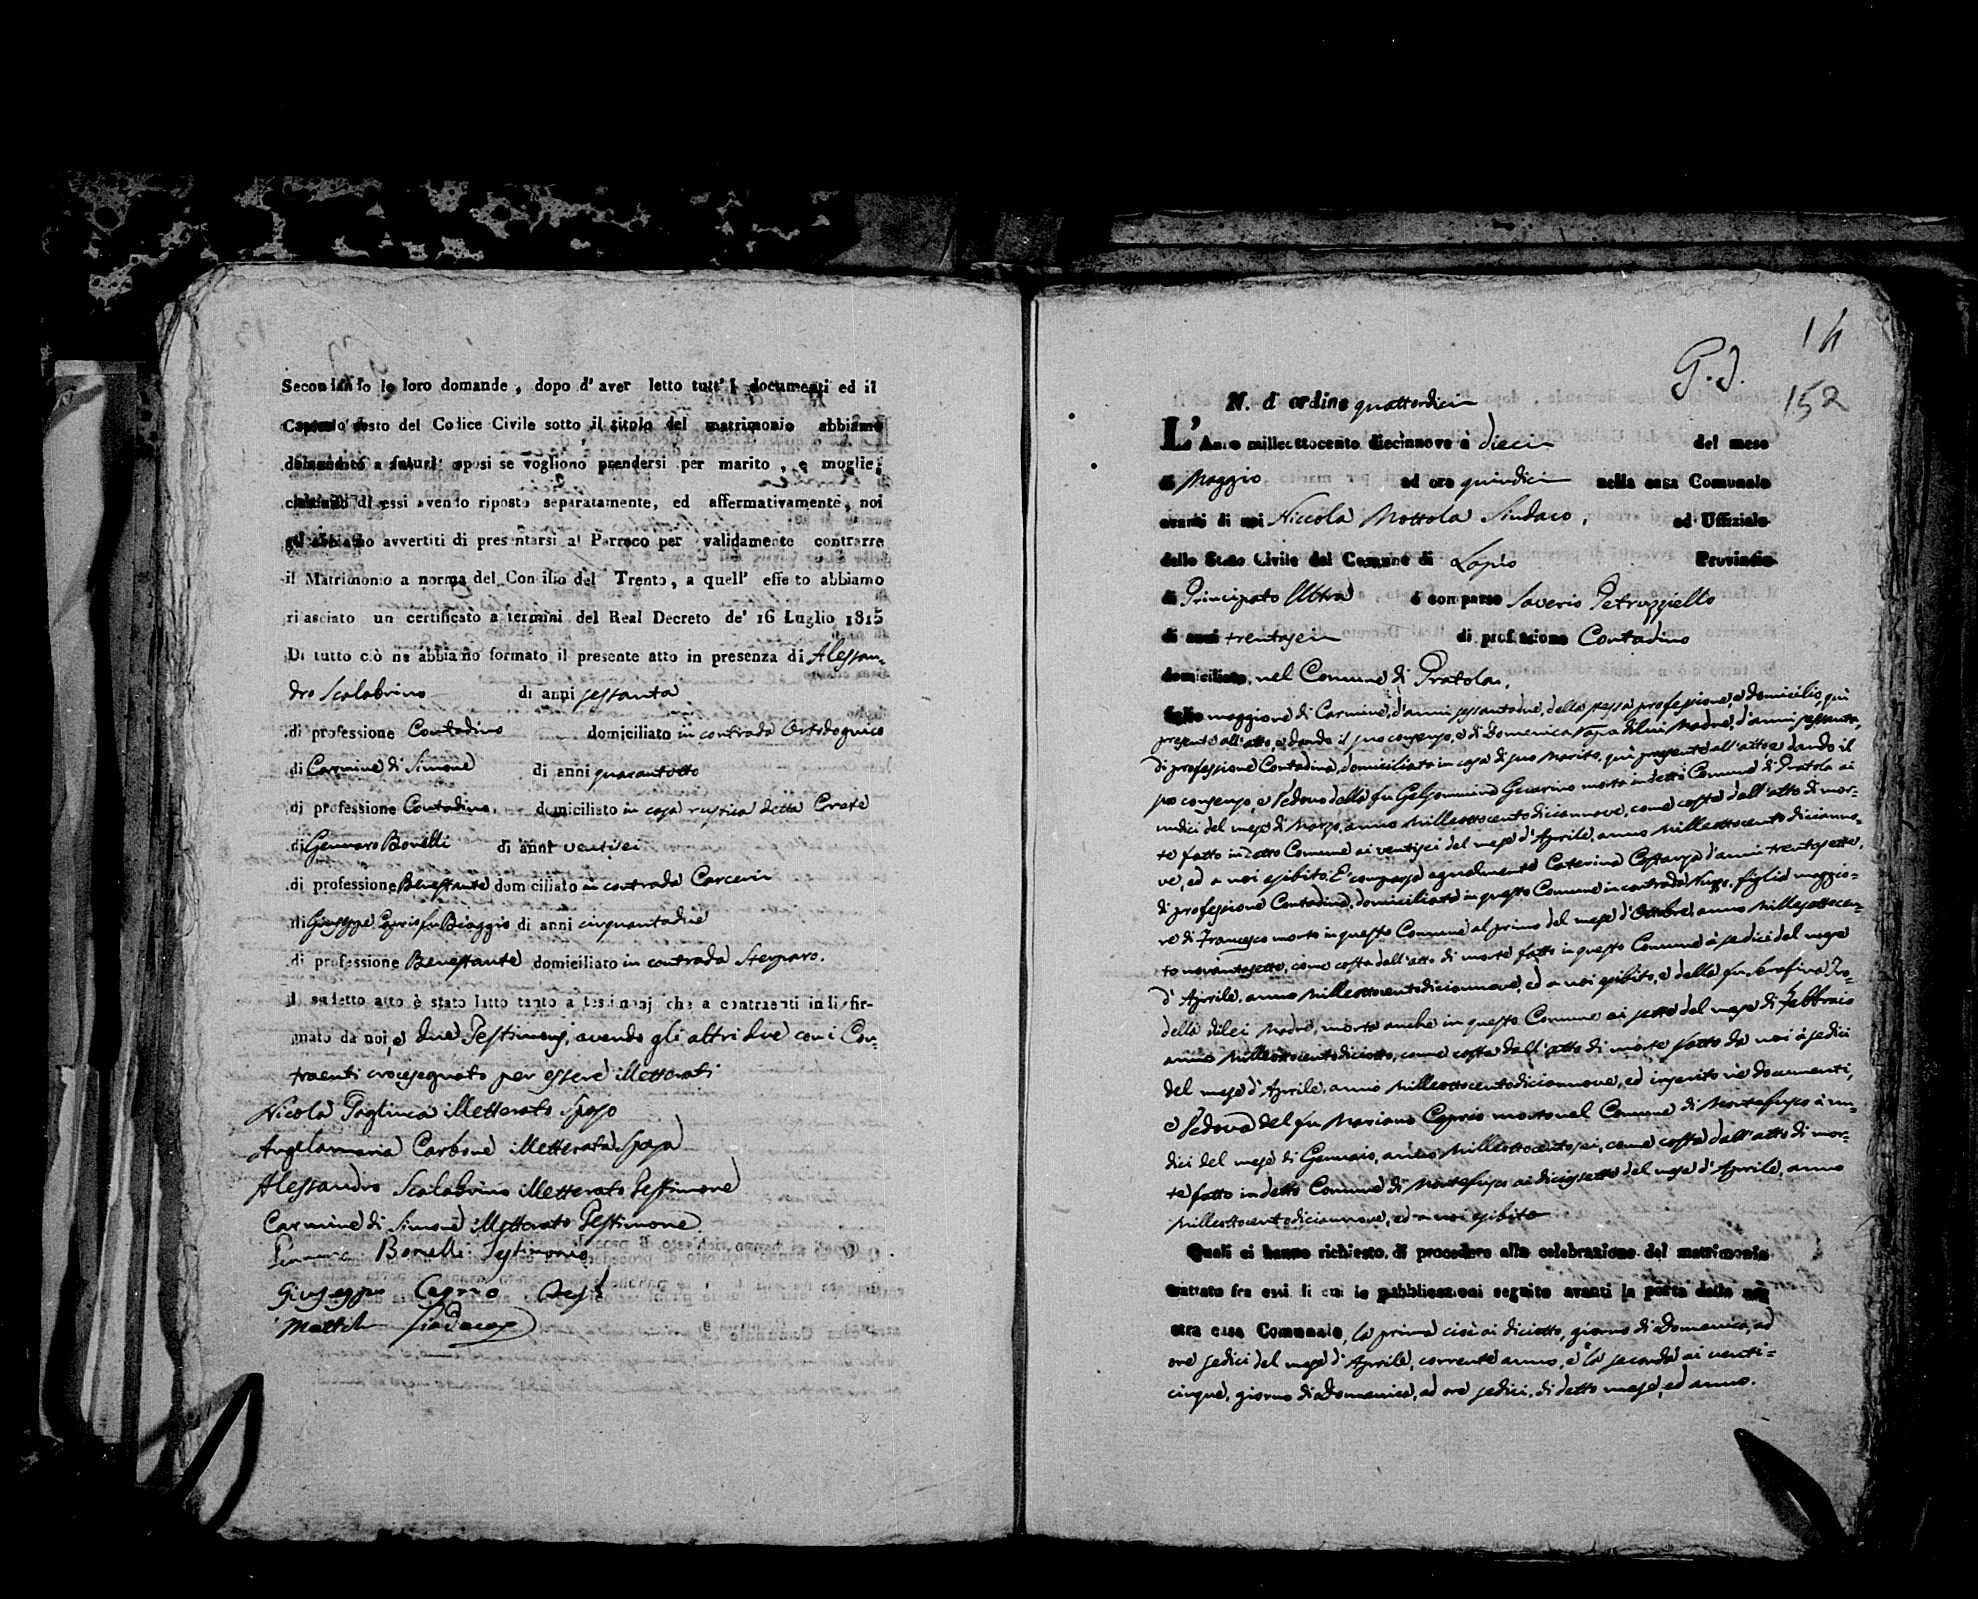 Secondando le loro domande, dopo d'aver letto tutt'i documenti ed il
Capitolo sesto del Codice Civile sotto il titolo del matrimonio abbiamo
domandato a futuri sposi se vogliono prendersi per marito, e moglie,
ciascuno di essi avendo riposto separatamente, ed affermativamente, noi
gli abbiamo avvertiti di presentarsi al Parroco per validamente contrarre
il Matrimonio a norma del Concilio del Trento, a quell' effetto abbiamo
rilasciato un certificato a termini del Real Decreto de' 16 Luglio 1815
Di tutto ciò ne abbiamo formato il presente atto in presenza di Alessan-
dro Scalabrino di anni sessanta
di professione Contadino domiciliato in contrada
di Carmine di Simone di anni quarantotto
di professione Contadino, domiciliato in casa rustica detta
di Gennaro Bonelli di anni ventisei
di professione Benestante domiciliato in contrada Carceri
di Giuseppe Caprio fu Biaggio di anni cinquantadue
di professione Benestante domiciliato in contrada
Il sudetto atto è stato letto tanto a testimonj che a contraenti indi fir-
mato da noi, e due Testimonj, avendo gli altri due con i Con-
traenti crocesegnato per essere illetterati
Nicola Pagliuca illetterato Sposo
Angelamaria Carbone illetterata Sposa
Alessandro Scalabrino illetterato Testimone
Carmine di Simone illetterato Testimone
Bonelli Testimonio
Giuseppe Caprio
Sindaco
14
G.I.
152
N. d'ordine quattordici
L'Anno millecottocento diecinnove à dieci del mese
di Maggio ad ore quindici nella casa Comunale
avanti di noi Niccola Mottola Sindaco, ed Uffiziale
dello Stato Civile del Comune di Lapio Provincia
di Principato Ultra è comparso Saverio Petruzziello
di anni trentasei di professione Contadino
domiciliato nel Comune di Pratola,
figlio maggiore di Carmine, d'anni sessantadue, della stessa professione, e domicilio, quì
presente all'atto, e dando il suo consenso, e di Domenica Papa di lui Madre, d'anni sessanta,
di professione Contadina, domiciliata in casa di suo Marito, quì presente all'atto e dando il
suo consenso, e Vedovo della fu Gelsomina morta in detto Comune di Pratola ai
undici del mese di Marzo, anno Milleottocentodiciannove, come costa dall'atto di mor-
te fatto in detto Comune ai ventisei del mese d'Aprile, anno Milleottocentodicianno-
ve, ed a noi esibito. E' comparsa egualmente Caterina Costanza d'anni trentasette,
di professione Contadina, domiciliata in questo Comune in contrada, figlia maggio-
re di Francesco morto in questo Comune al primo del mese d'Ottobre, anno Millesettecen-
to novantasette, come costa dall'atto di morte fatto in questo Comune à sedici del mese
d'Aprile, anno Milleottocentodiciannove, ed a noi esibito, e della fu Serafina
della dilei Madre, morta anche in questo Comune ai sette del mese di Febbraio
anno Milleottocentodiciotto, come costa dall'atto di morte fatto da noi à sedici
del mese d'Aprile, anno Milleottocentodiciannove, ed inserito ne' documenti,
e Vedova del fu Mariano Caprio morto nel Comune di Montefusco à un-
dici del mese di Gennaio, anno Milleottocentosei, come costa dall'atto di mor-
te fatto in detto Comune di Montefusco ai diciassette del mese d'Aprile, anno
Milleottocentodiciannove, ed a noi esibito
Quali ci hanno richiesto di procedere alla celebrazione del matrimonio
trattato fra essi li cui le pubblicazioni seguite avanti la porta della no
stra casa Comunale, la prima cioè ai diciotto, giorno di Domenica, ad
ore sedici del mese d'Aprile, corrente anno, e la seconda ai venti=
cinque, giorno di Domenica, ad ore sedici, di detto mese, ed anno.